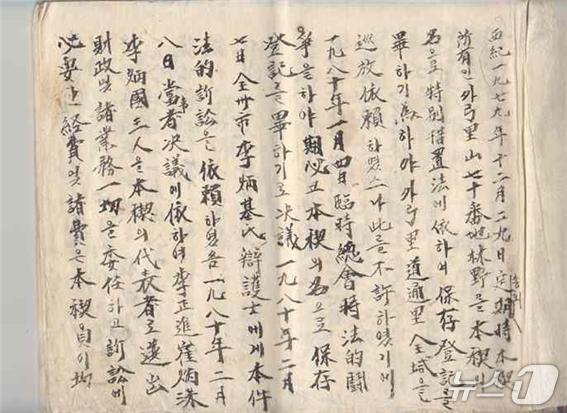 西紀一九七九年十二月二九日定期時本稧
所有인外弓里山七十番地林野를本稧
名으로特別措置法에依하여保存登記를
畢하기爲하야外弓里道通里全域을
巡放依賴하였으나此를不許하였기에
一九八十年一月四日臨時總會時法的鬪
爭을하야期必코本稧의名으로保存
登記를畢하기로決議一九八十年二月
七日全州市李炳基氏辯護士에게本件
法的訴訟을依賴하였음一九八十年二月
八日當者決議에依하여李正進崔炳洙
李炳國三人을本稧의代表者로選出
財政및諸業務一切을委任하고訴訟에
必要한經費및諸費은本稧員이
뉴스1